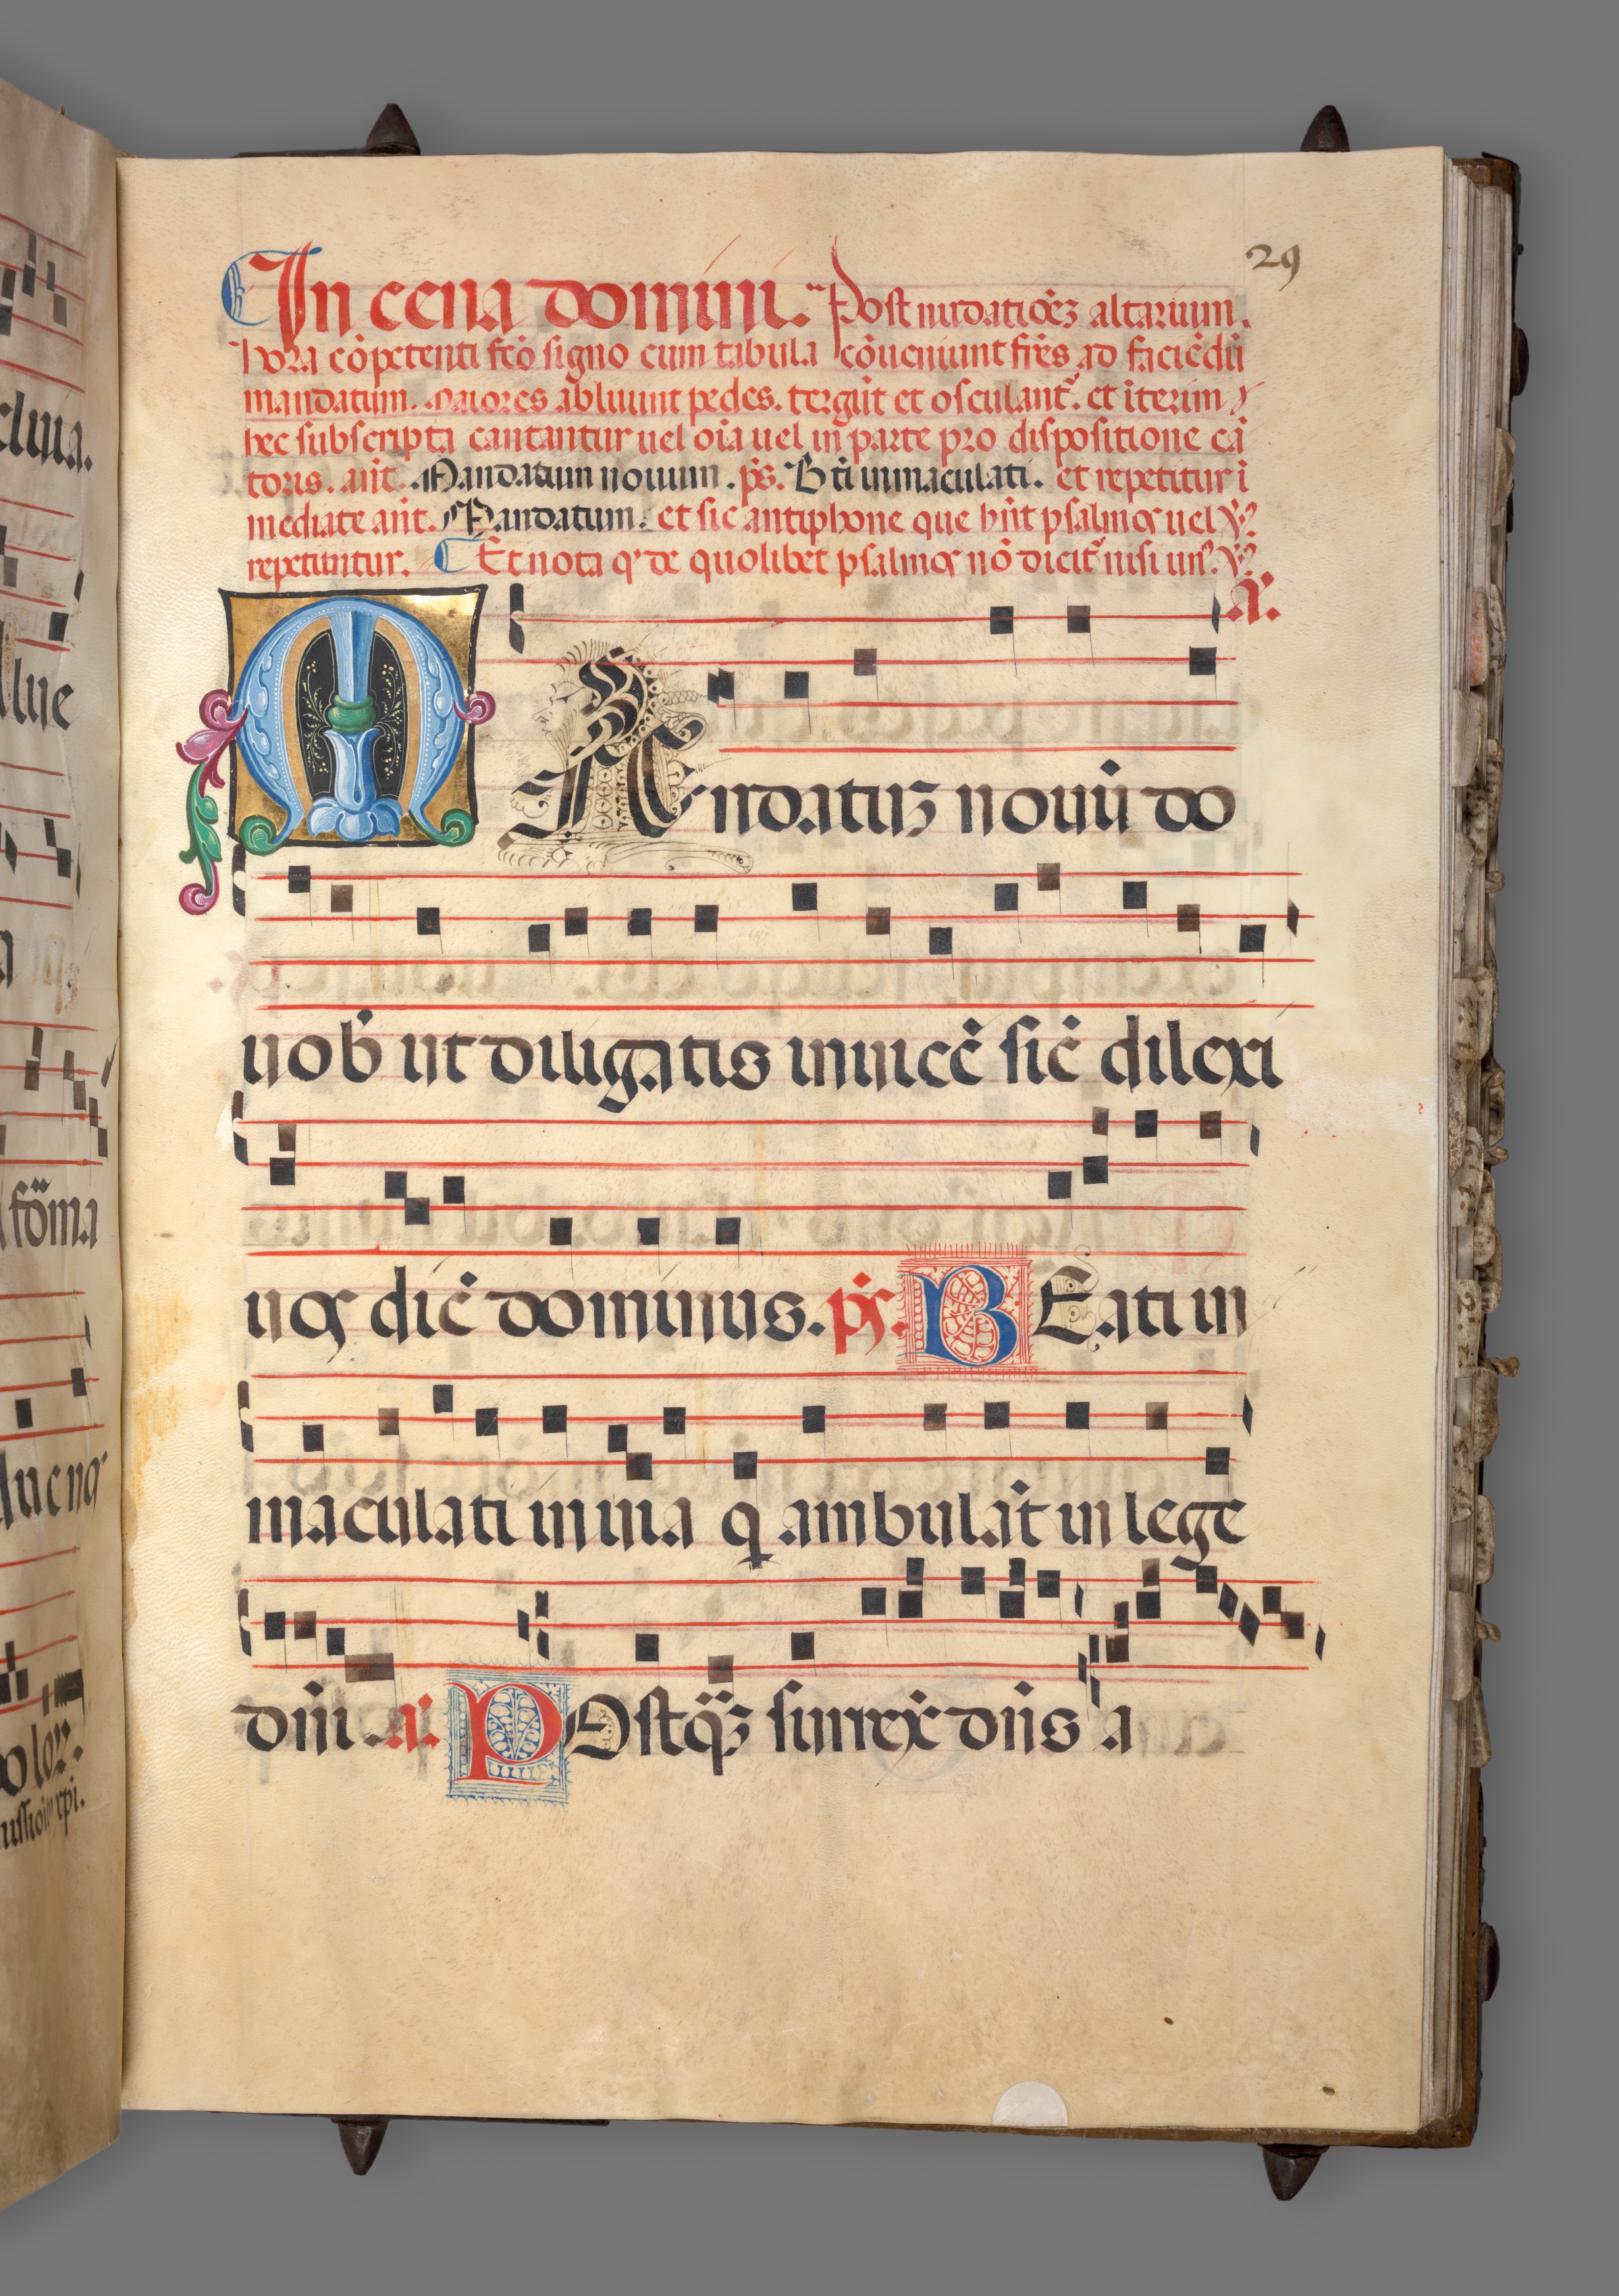 29
In cena domini. Post nudatiōez altarium.
Hora cōpetenti fc̄o signo cum tabula cōueniunt frēs ad faciēdū
mandatum. maiores abluunt pedes. tergūt et osculant̄. et īterim
hec subscripta cantantur uel oīa uel in parte pro dispositione cā
toris. an̄t. Mandatum nouum. ps̄. Bt̄i inmaculati. et repetitur ī
mediate an̄t. Mandatum. et sic antiphone que hn̄t psalmos uel ꝟ
repetuntur. Et nota q de quolibet psalmo nō dicit̄ nisi un ꝟ
añ.
MAndatuz nouū do
uob̄ ut diligatis inuicē sic̄ dilexi
uos dic̄ dominus. ps̄. BEati in
maculati in uia q ambulāt in lege
dn̄i. a. POstq̄z surrex̄ dn̄s a
cluia.
lue
fōma
dolor.
ussioīs xpi.